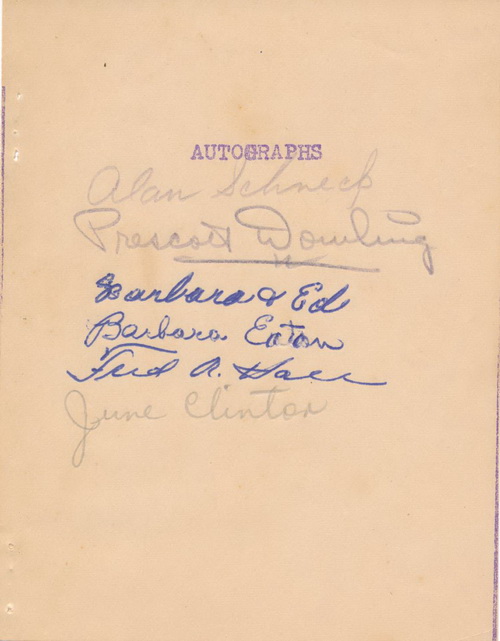 AUTOGRAPHS
Alan Schneck
Prescott Dowling
Barbara & Ed
Barbara Eaton
Fred A. Hall
June Clinton